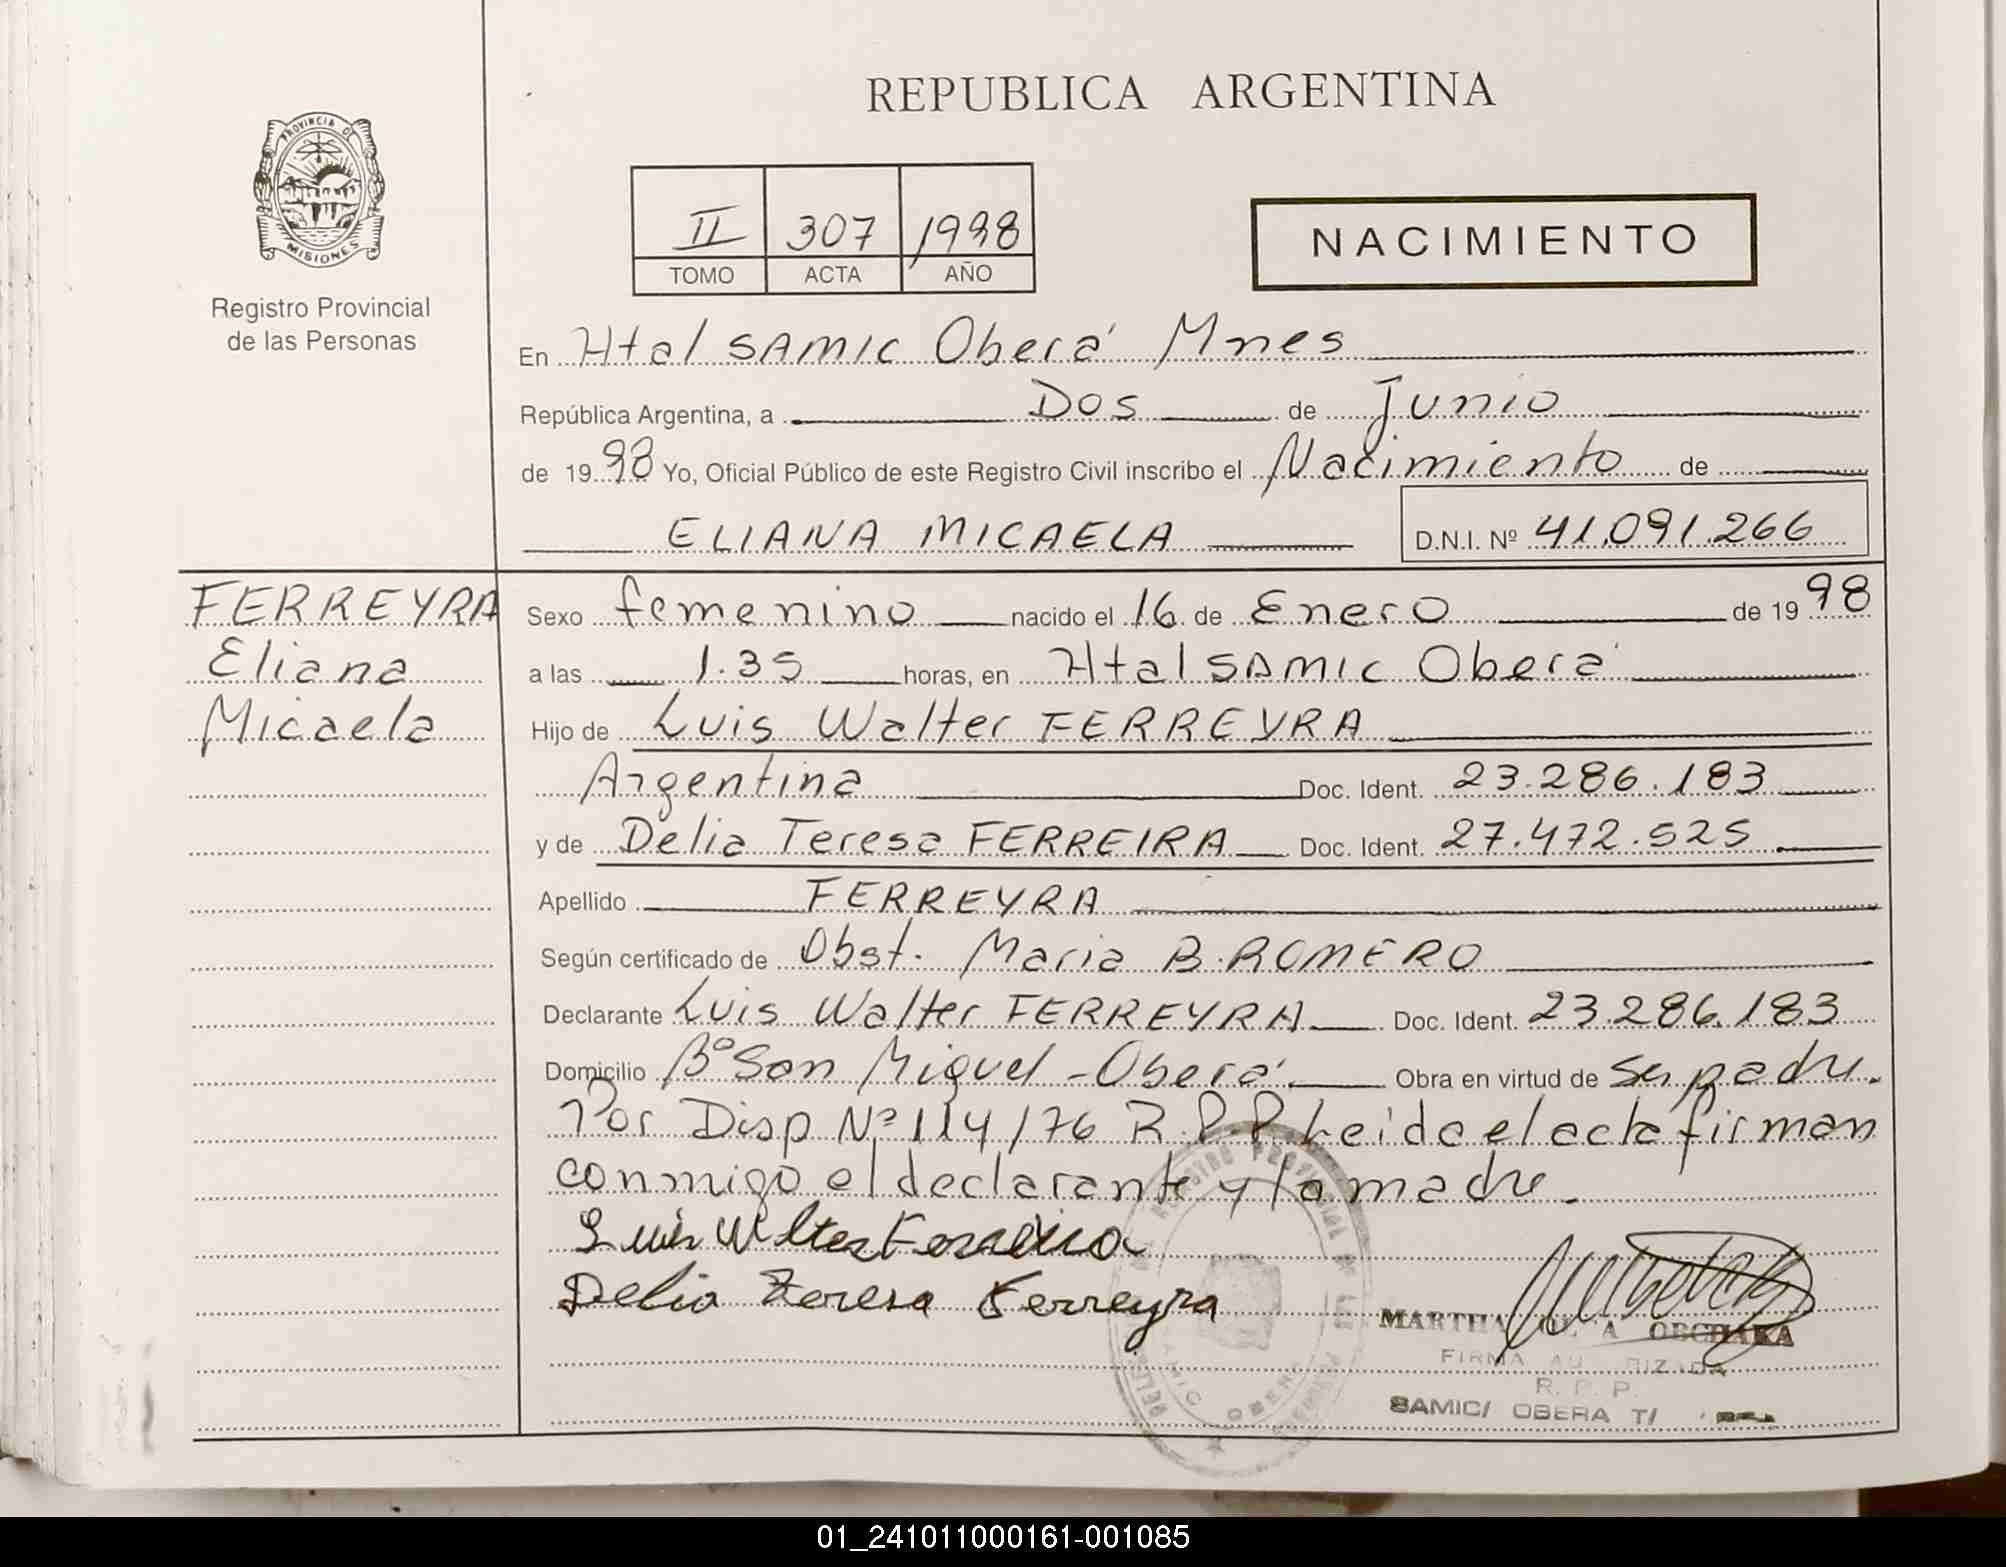 REPUBLICA ARGENTINA
PROVINCIA DE
MISIONES
Registro Provincial
de las Personas
II 307 1998
TOMO ACTA AÑO
NACIMIENTO
En Htal SAMIC Oberá Mnes
República Argentina, a Dos de Junio
de 1998 Yo, Oficial Público de este Registro Civil inscribo el Nacimiento de
ELIANA MICAELA D.N.I. Nº 41.091.266
FERREYRA
Eliana
Micaela
Sexo femenino nacido el 16 de Enero de 1998
a las 1.35 horas, en Htal SAMIC Oberá
Hijo de Luis Walter FERREYRA
Argentina Doc. Ident. 23.286.183
y de Delia Teresa FERREIRA Doc. Ident. 27.472.525
Apellido FERREYRA
Según certificado de Obst. Maria B. ROMERO
Declarante Luis Walter FERREYRA Doc. Ident. 23.286.183
Domicilio Bº San Miguel - Oberá Obra en virtud de su padre.
Por Disp Nº 114/76 R.P.P. Leida el acta firman
conmigo el declarante y la madre.
Luis Walter Ferreira
Delia Teresa Ferreyra
MARTHA
R. P. P.
SAMIC/ OBERA
01_241011000161-001085